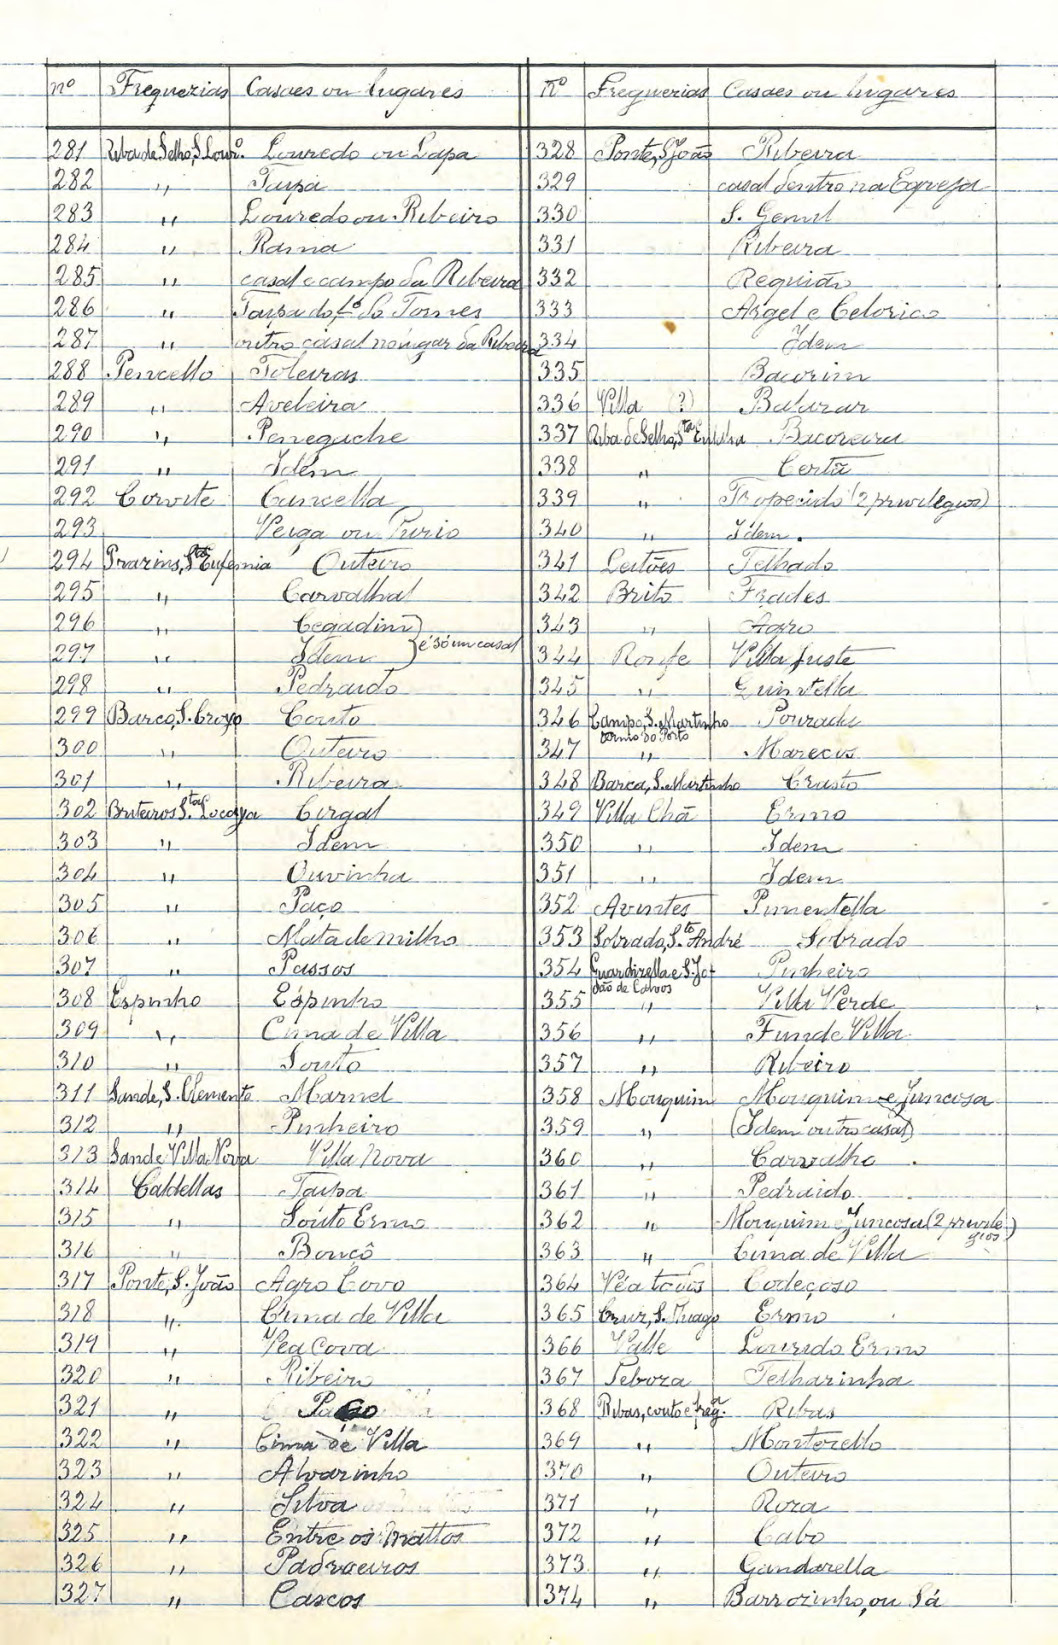 nº Freguerias Casaes ou lugares
281 Riba de Selho, S. Lourº. Louredo ou Lapa
282 " Taipa
283 " Louredo ou Ribeiro
284 " Rama
285 " casal e campo da Ribeira
286 " Taipa do Lº do Tornes
287 " outro casal no lugar da Ribeira
288 Pencello Toleiras
289 " Aveleira
290 " Penegache
291 " Idem
292 Corvite Cancella
293 Veiga ou Rurio
294 Prazins, Stª Eufemia Outeiro
295 " Carvalhal
296 " Cegadim
297 " Idem } é só um casal
298 " Pedraido
299 Barco, S. Croyo Couto
300 " Outeiro
301 " Ribeira
302 Briteiros Stª Locaya Cirgal
303 " Idem
304 " Ouvinha
305 " Paço
306 " Mata de milho
307 " Passos
308 Espinho Espinho
309 " Cima de Villa
310 " Souto
311 Sande, S. Clemente Marnel
312 " Pinheiro
313 Sande Villa Nova Villa Nova
314 Caldellas Taipa
315 " Souto Ermo
316 " Boucô
317 Ponte, S. João Agro Covo
318 " Cima de Villa
319 " Vea Cova
320 " Ribeiro
321 " Paço
322 " Cima de Villa
323 " Alvarinho
324 " Silva
325 " Entre os Mattos
326 " Padroeiros
327 " Cascos
Nº Freguerias Casaes ou lugares
328 Ponte, S. João Ribeira
329 casal dentro na Egreja
330 S. Gemil
331 Ribeira
332 Requião
333 Argel e Celorico
334 Idem
335 Bacorim
336 Villa (?) Baluzar
337 Riba de Selho, Stª Eulalia Bacoreira
338 " Certã
339 " Tropecido (2 privilegios)
340 " Idem.
341 Leitões Telhado
342 Brito Frades
343 " Agro
344 Ronfe Villa Juste
345 " Quintella
346 Campo, S. Martinho Pourada
termo do Porto
347 " Marecos
348 Barca, S. Martinho Crasto
349 Villa Chã Ermo
350 " Idem
351 " Idem
352 Avintes Pimentella
353 Sobrado, Stº André Sobrado
354 Guardizella e S. Jo= Pinheiro
ão de Calvos
355 " Villa Verde
356 " Fundevilla
357 " Ribeiro
358 Mouquim Mouquim e Juncosa
359 " (Idem outro casal)
360 " Carvalho
361 " Pedraido
362 " Mouquim e Juncosa (2 privile=
gios)
363 " Cima de Villa
364 Véatodos Codeçoso
365 Cruz, S. Thiago Ermo
366 Valle Louredo Ermo
367 Telharinha
368 Ribas, couto e fregª. Ribas
369 " Montezello
370 " Outeiro
371 " Roza
372 " Cabo
373 " Gandarella
374 " Barrozinho, ou Sá